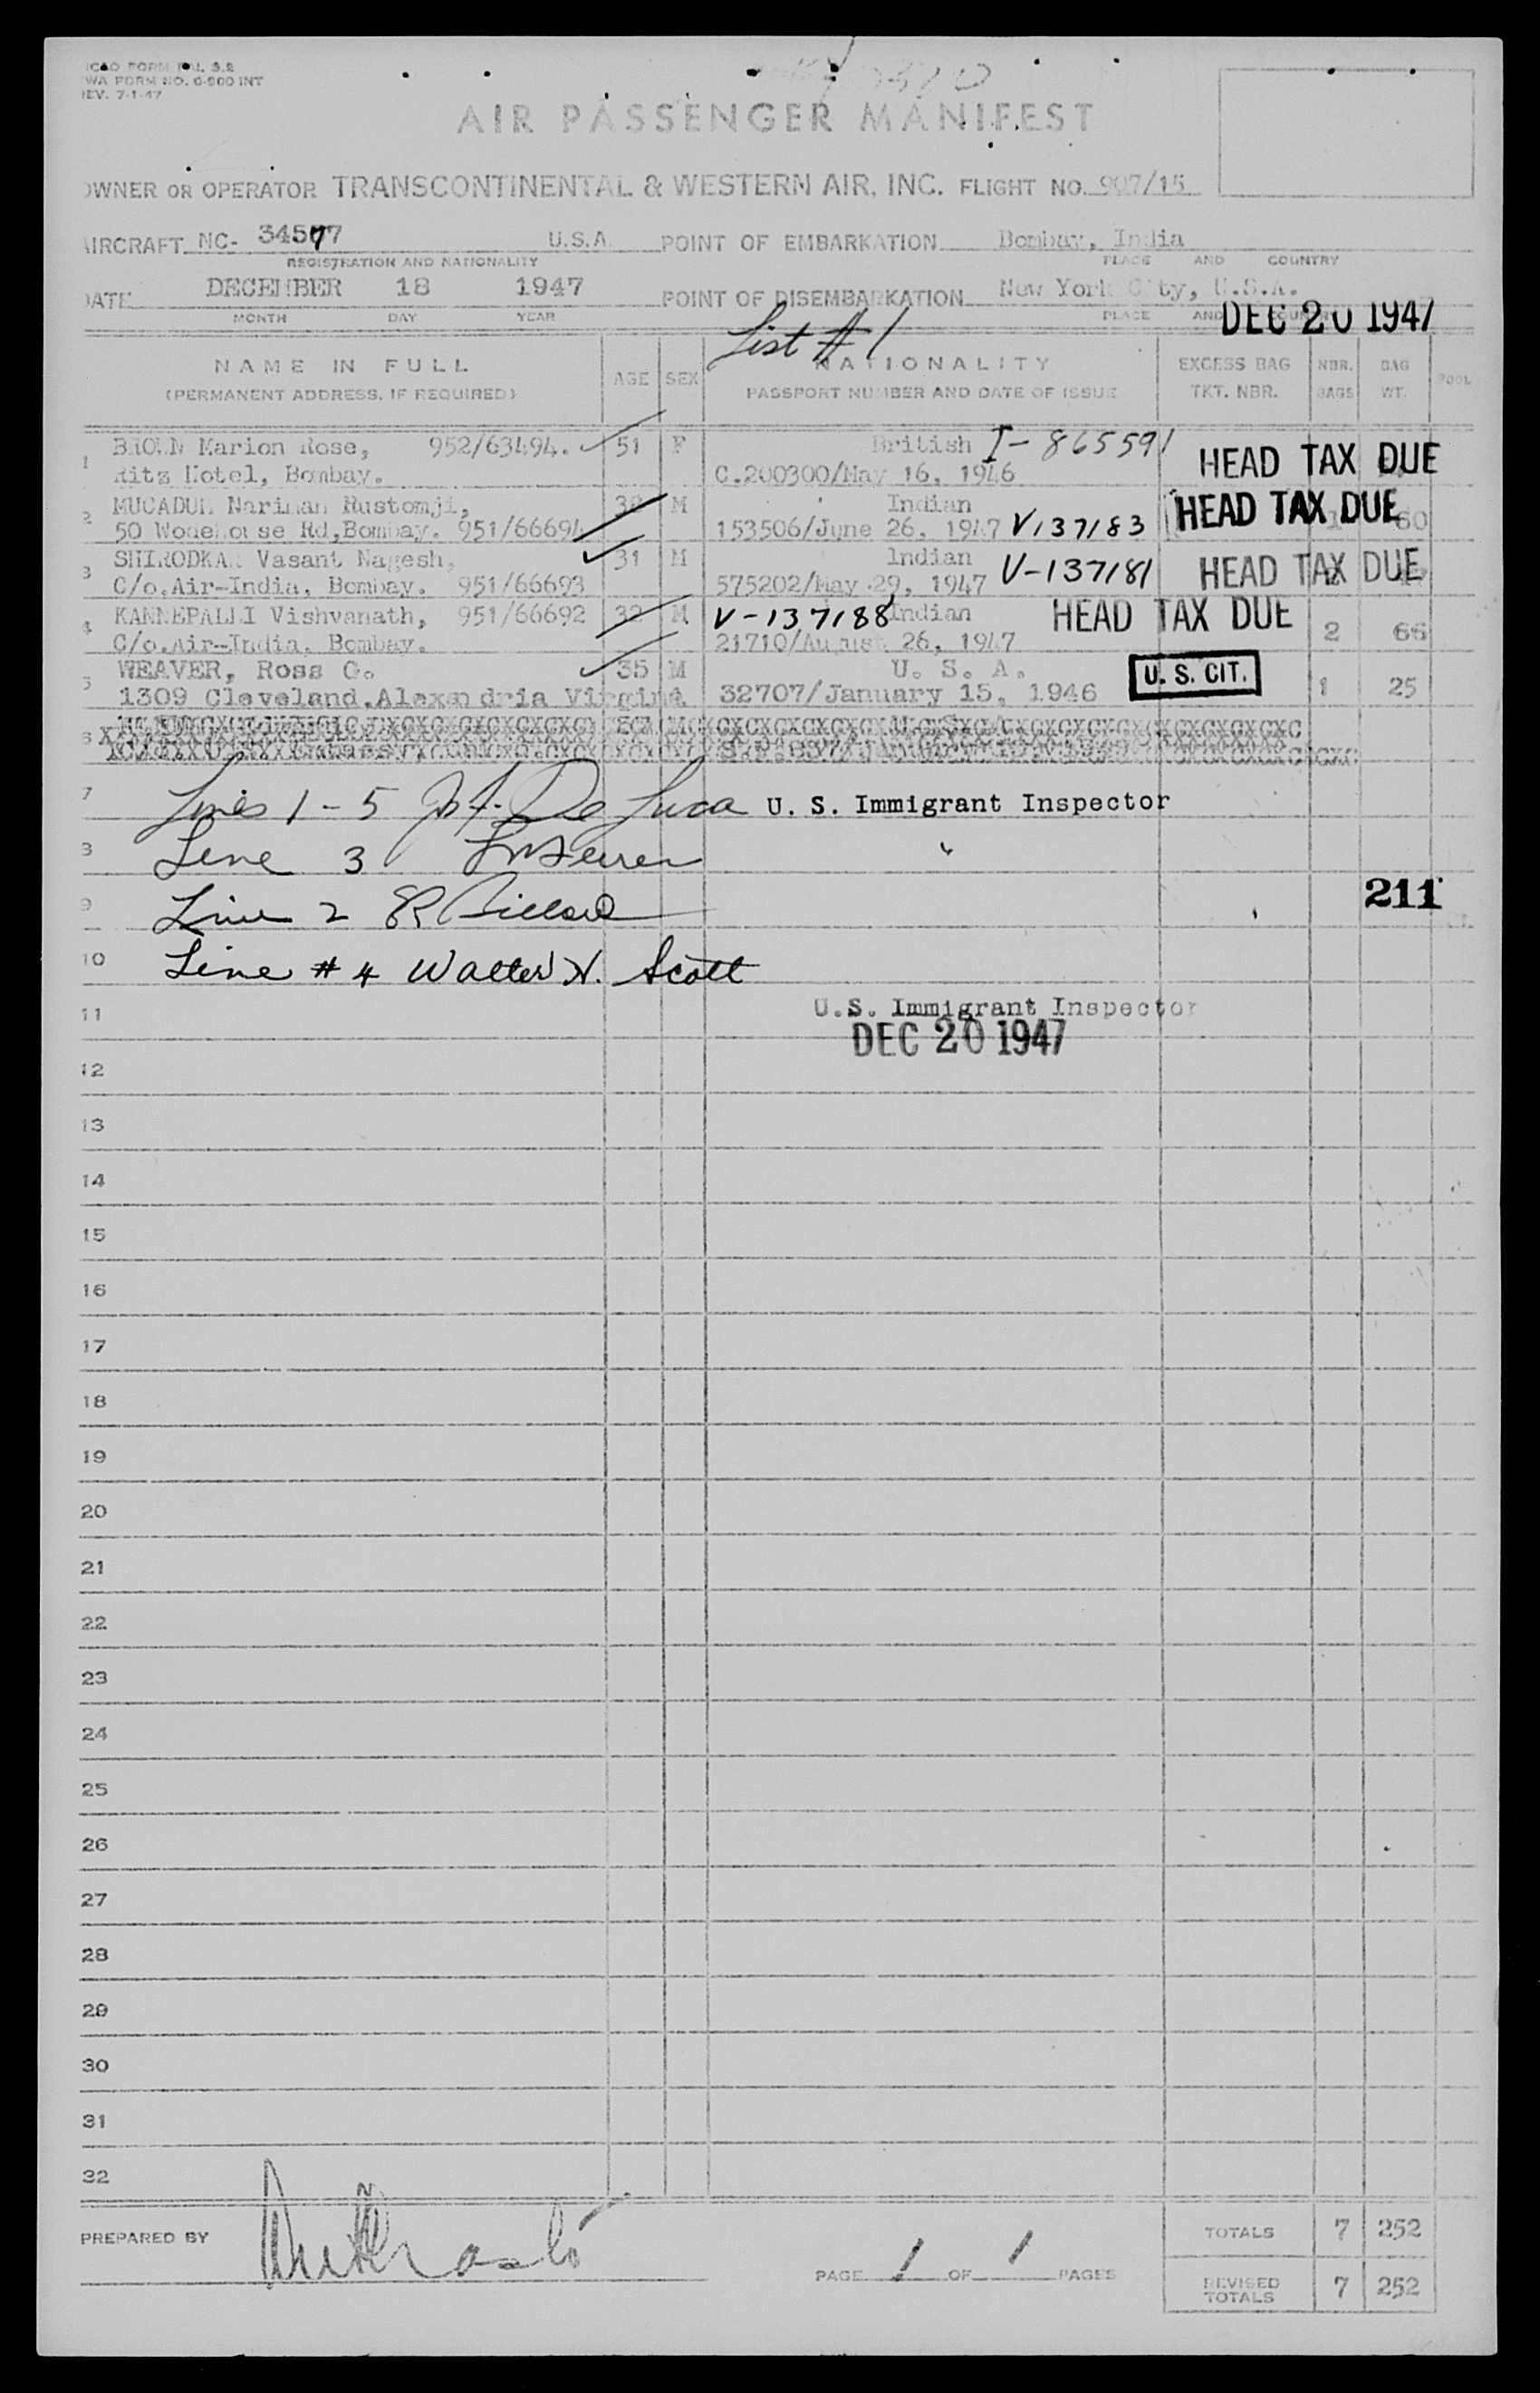 ICAO FORM
WA FORM NO. 0-900 INT
REV. 7-1-47
AIR PASSENGER MANIFEST
OWNER OR OPERATOR TRANSCONTINENTAL & WESTERN AIR, INC. FLIGHT NO. 907/15
AIRCRAFT NC- 34577 U.S.A. POINT OF EMBARKATION Bombay, India
REGISTRATION AND NATIONALITY PLACE AND COUNTRY
DATE DECEMBER 18 1947 POINT OF DISEMBARKATION New York City, U.S.A.
MONTH DAY YEAR PLACE AND COUNTRY
DEC 20 1947
List # 1
NAME IN FULL AGE SEX NATIONALITY EXCESS BAG NBR. BAG POOL
(PERMANENT ADDRESS, IF REQUIRED) PASSPORT NUMBER AND DATE OF ISSUE TKT. NBR. BAGS WT.
1 BROWN Marion Rose, 952/63494. 51 F British I-865591 HEAD TAX DUE
Ritz Hotel, Bombay. C.200300/May 16, 1946
2 MUCADUM Nariman Rustomji, M Indian HEAD TAX DUE 60
50 Wodehouse Rd, Bombay. 951/66694 153506/June 26, 1947 V137183
3 SHIRODKAR Vasant Nagesh, 31 M Indian V-137181 HEAD TAX DUE
C/o.Air-India, Bombay. 951/66693 575202/May 29, 1947
4 KANNEPALLI Vishvanath, 951/66692 32 M V-137188 Indian HEAD TAX DUE 2 66
C/o.Air-India, Bombay. 21710/August 26, 1947
5 WEAVER, Ross G. 35 M U. S. A. U. S. CIT. 1 25
1309 Cleveland.Alexandria Virgini 32707/January 15, 1946
6
7 Lines 1 - 5 De Luca U. S. Immigrant Inspector
8 Line 3 "
9 Line 2 211
10 Line # 4 Walter H. Scott
11 U.S. Immigrant Inspector
DEC 20 1947
12
13
14
15
16
17
18
19
20
21
22
23
24
25
26
27
28
29
30
31
32
PREPARED BY
PAGE 1 OF 1 PAGES
TOTALS 7 252
REVISED TOTALS 7 252